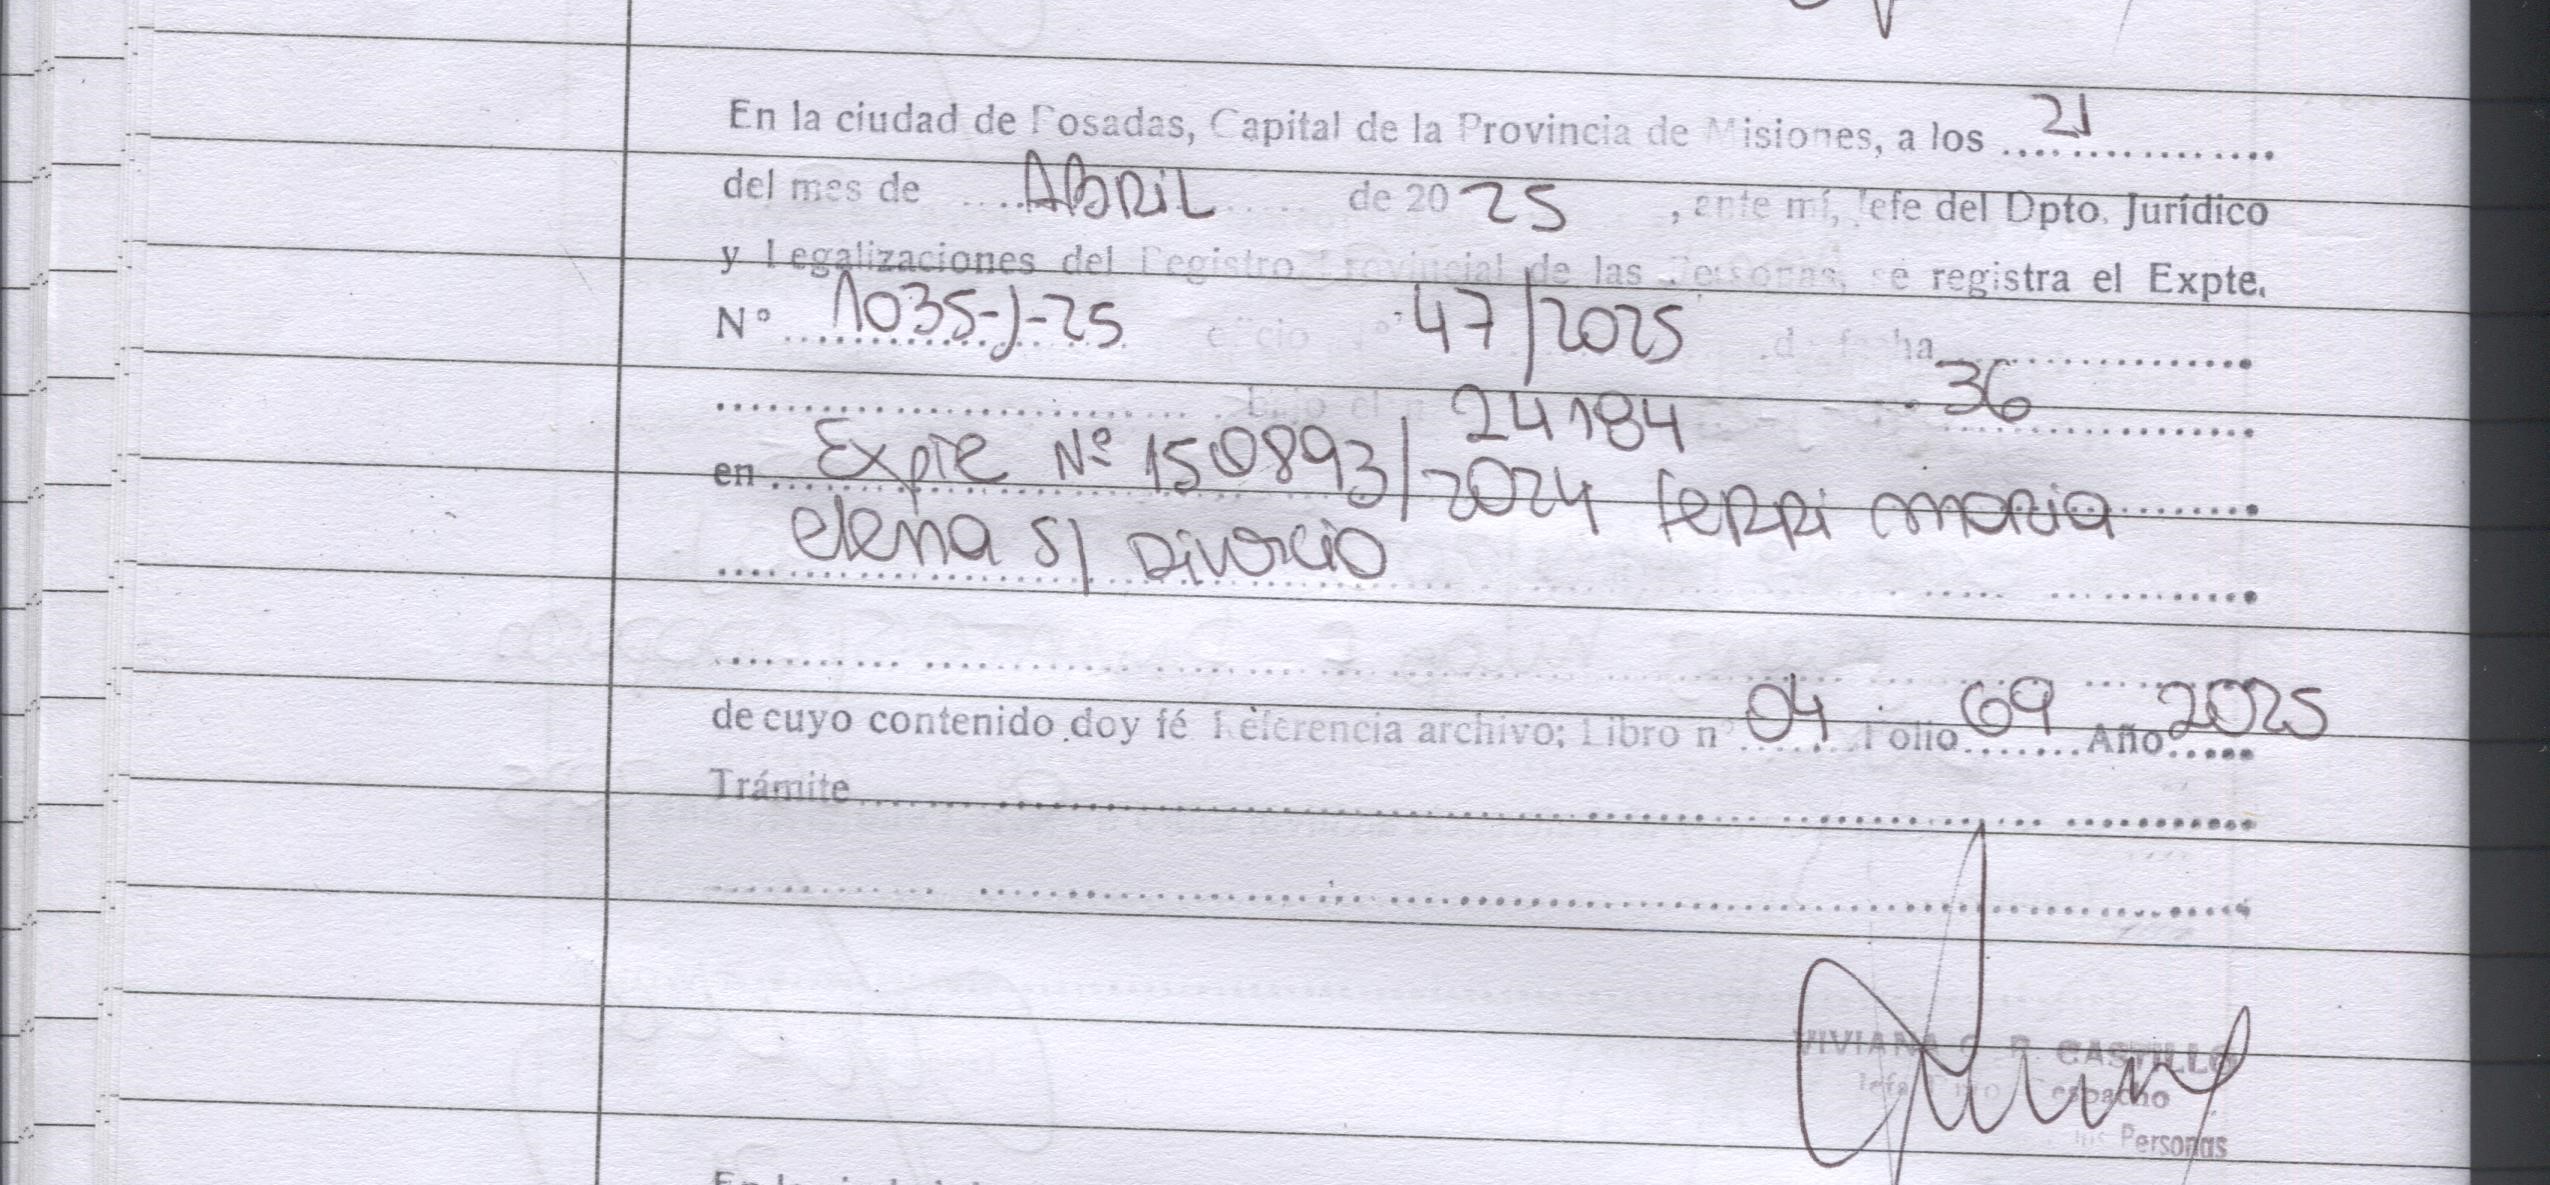 En la ciudad de Posadas, Capital de la Provincia de Misiones, a los 21
del mes de ABRIL de 2025, ante mí, Jefe del Dpto. Jurídico
y Legalizaciones del Registro Provincial de las Personas, se registra el Expte.
Nº 1035-J-25 oficio 47/2025 de fecha
bajo el 24184 36
en Expte Nº 150893/2024 Ferri maria
elena s/ Divorcio
de cuyo contenido doy fé Referencia archivo; Libro nº 04 Folio 69 Año 2025
Trámite
VIVIANA CASTILLO
Despacho
las Personas